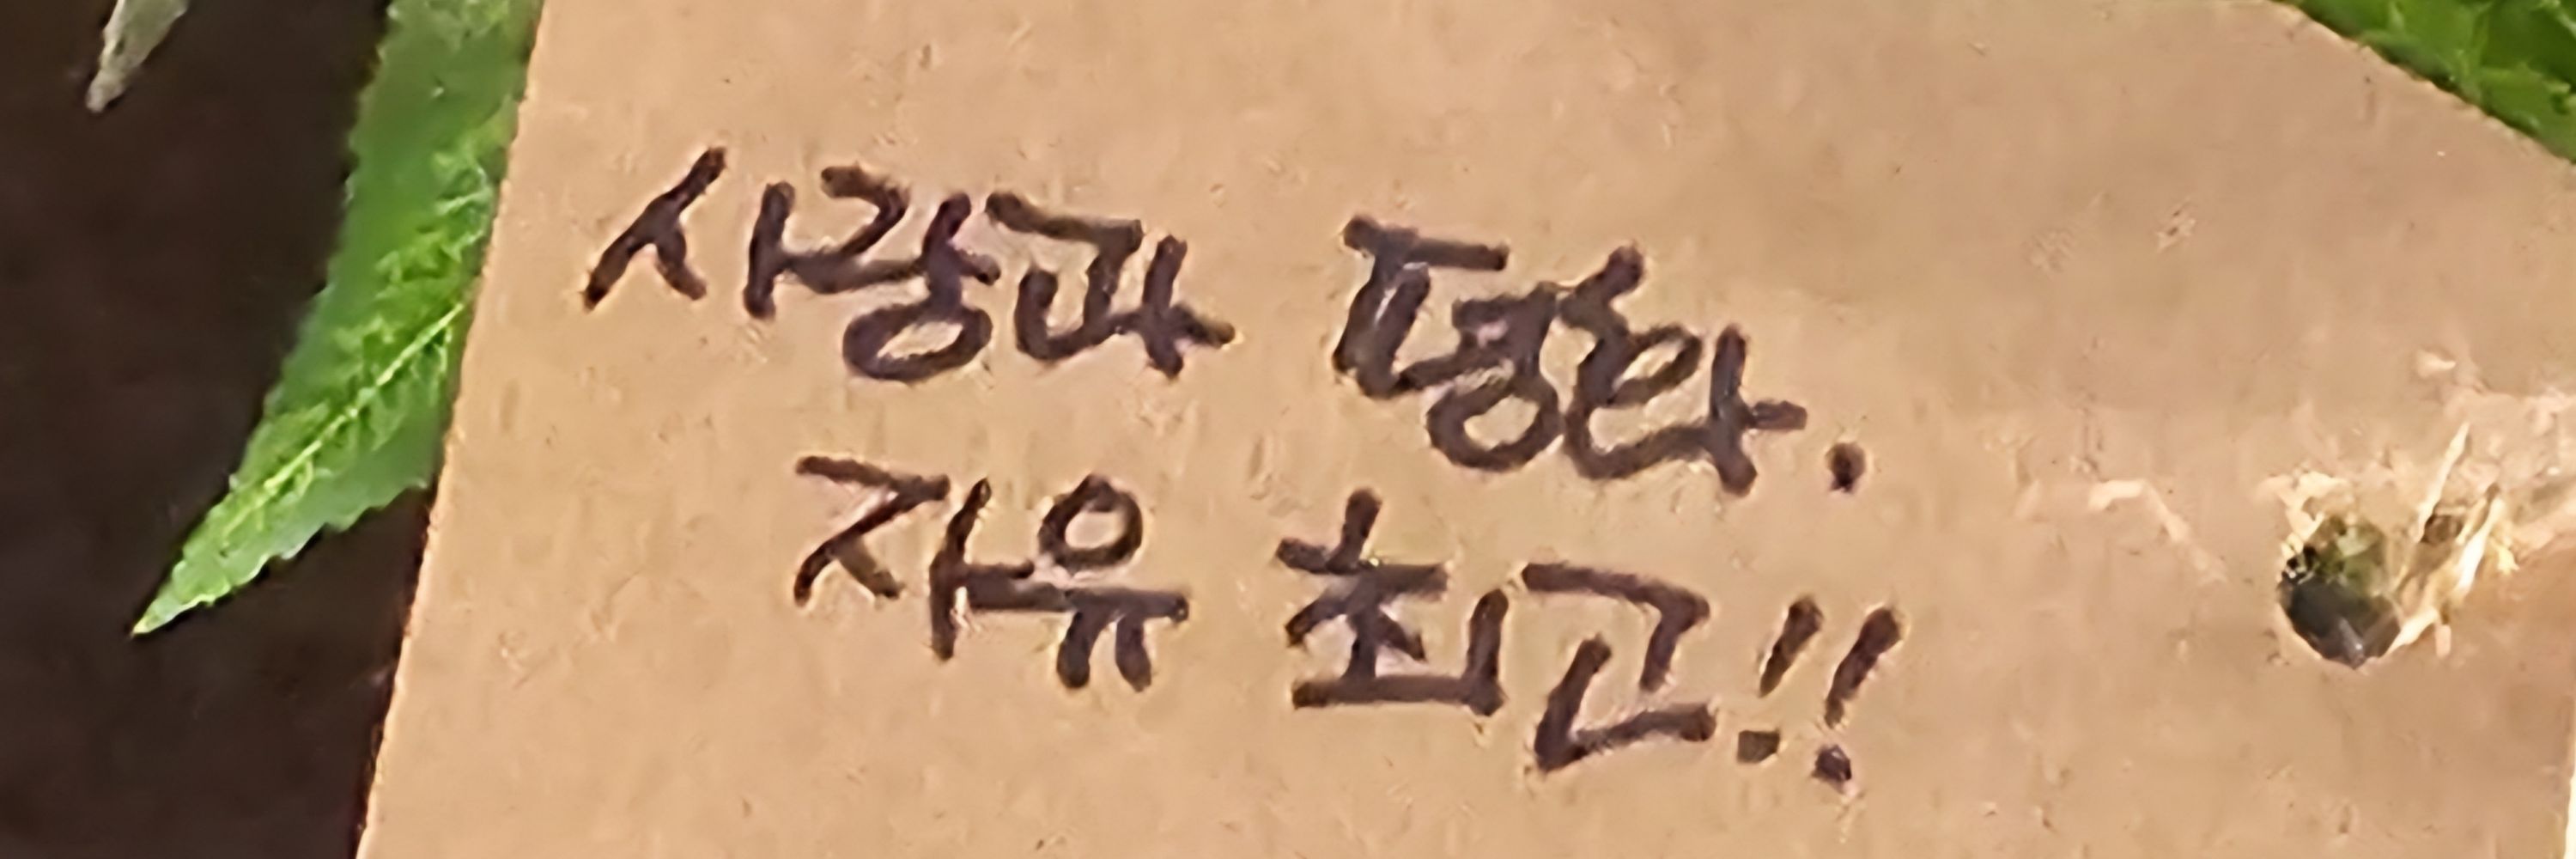 사랑과 평화.
자유 최고!!